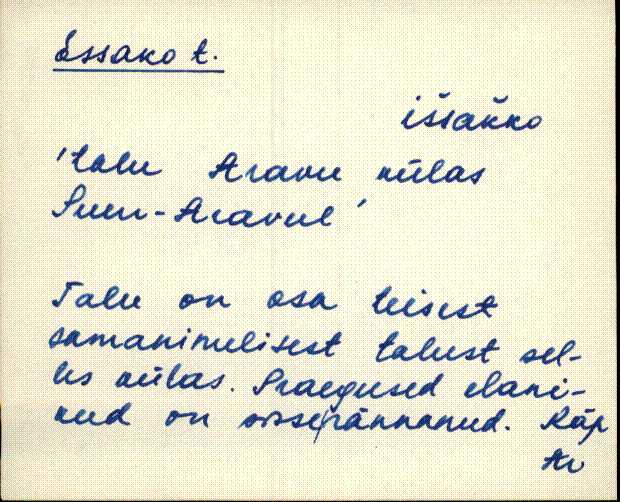 Issako t.
iššakko
'talu Aravu külas
Suur-Aravul'
Talu on osa teisest
samanimelisest talust sel-
les külas. Praegused elani-
kud on sisserännanud. Räp
Ar